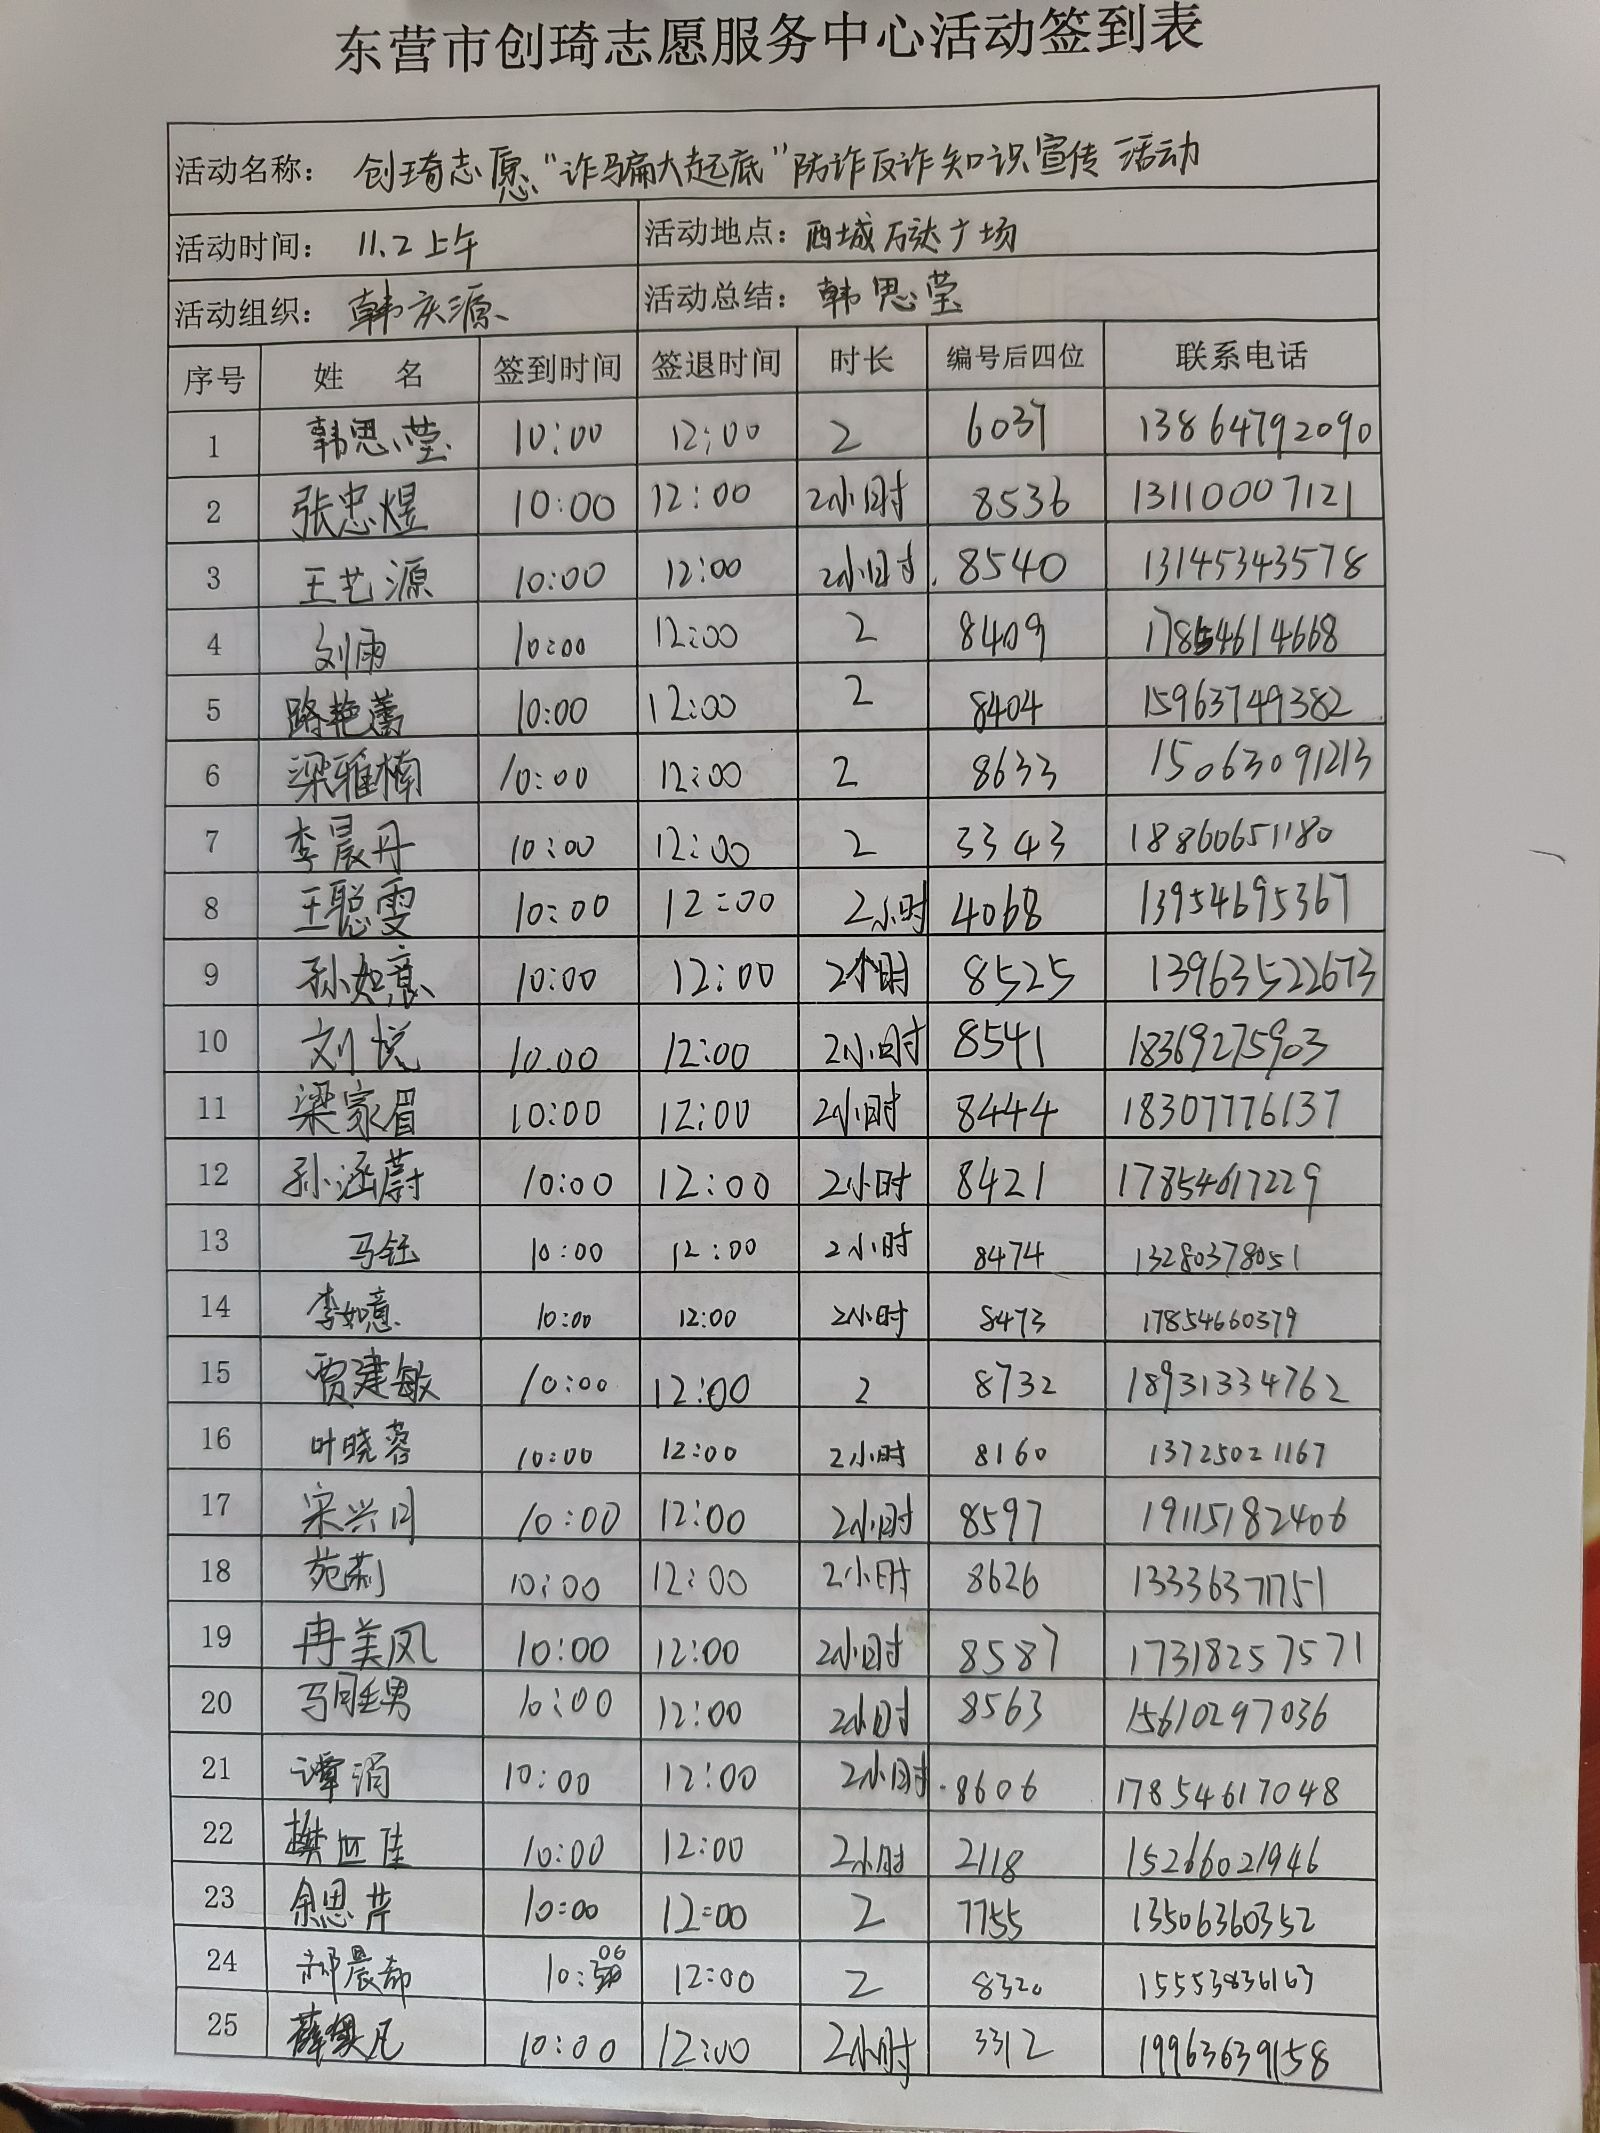 东营市创琦志愿服务中心活动签到表
活动名称： 创琦志愿“诈骗大起底”防诈反诈知识宣传活动
活动时间： 11.2上午 活动地点： 西城万达广场
活动组织： 韩庆源 活动总结： 韩思莹
序号 姓 名 签到时间 签退时间 时长 编号后四位 联系电话
1 韩思莹 10:00 12:00 2 6037 13864792090
2 张忠煜 10:00 12:00 2小时 8536 13110007121
3 王艺源 10:00 12:00 2小时 8540 13145343578
4 刘雨 10:00 12:00 2 8409 17854614668
5 路艳蕾 10:00 12:00 2 8404 15963749382
6 梁雅楠 10:00 12:00 2 8633 15063091213
7 李晨丹 10:00 12:00 2 3343 18860651180
8 王聪雯 10:00 12:00 2小时 4068 13954695367
9 孙如意 10:00 12:00 2小时 8525 13963522673
10 刘悦 10.00 12:00 2小时 8541 18369275903
11 梁家眉 10:00 12:00 2小时 8444 18307776137
12 孙涵蔚 10:00 12:00 2小时 8421 17854617229
13 马钰 10:00 12:00 2小时 8474 13280378051
14 李如意 10:00 12:00 2小时 8473 17854660379
15 贾建敏 10:00 12:00 2 8732 18931334762
16 叶晓蓉 10:00 12:00 2小时 8160 13725021167
17 宋兴月 10:00 12:00 2小时 8597 19115182406
18 苑莉 10:00 12:00 2小时 8626 13336371751
19 冉美凤 10:00 12:00 2小时 8587 17318257571
20 10:00 12:00 2小时 8563 15610297036
21 谭涓 10:00 12:00 2小时 8606 17854617048
22 10:00 12:00 2小时 2118 15266021946
23 余思芹 10:00 12:00 2 7755 13506360352
24 10:06 12:00 2 8320 15553836163
25 10:00 12:00 2小时 3312 19963639158